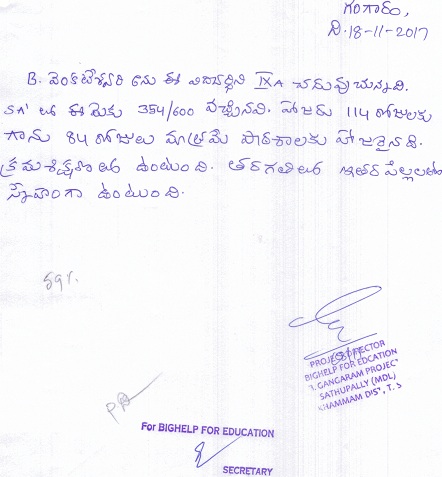 గంగారం,
ది. 18-11-2017
B. వెంకటేశ్వరి అను ఈ విద్యార్థిని IX A చదువుచున్నది.
SA1 లో ఈమెకు 354/600 వచ్చినవి. హాజరు 114 రోజులకు
గాను 84 రోజులు మాత్రమే పాఠశాలకు హాజరైనది.
క్రమశిక్షణలో ఉంటుంది. తరగతిలో ఇతర పిల్లలతో
స్నేహంగా ఉంటుంది.
59%
PROJECT DIRECTOR
BIGHELP FOR EDCATION
GANGARAM PROJECT
SATHUPALLY (MDL)
KHAMMAM DIST, T. S
For BIGHELP FOR EDUCATION
SECRETARY